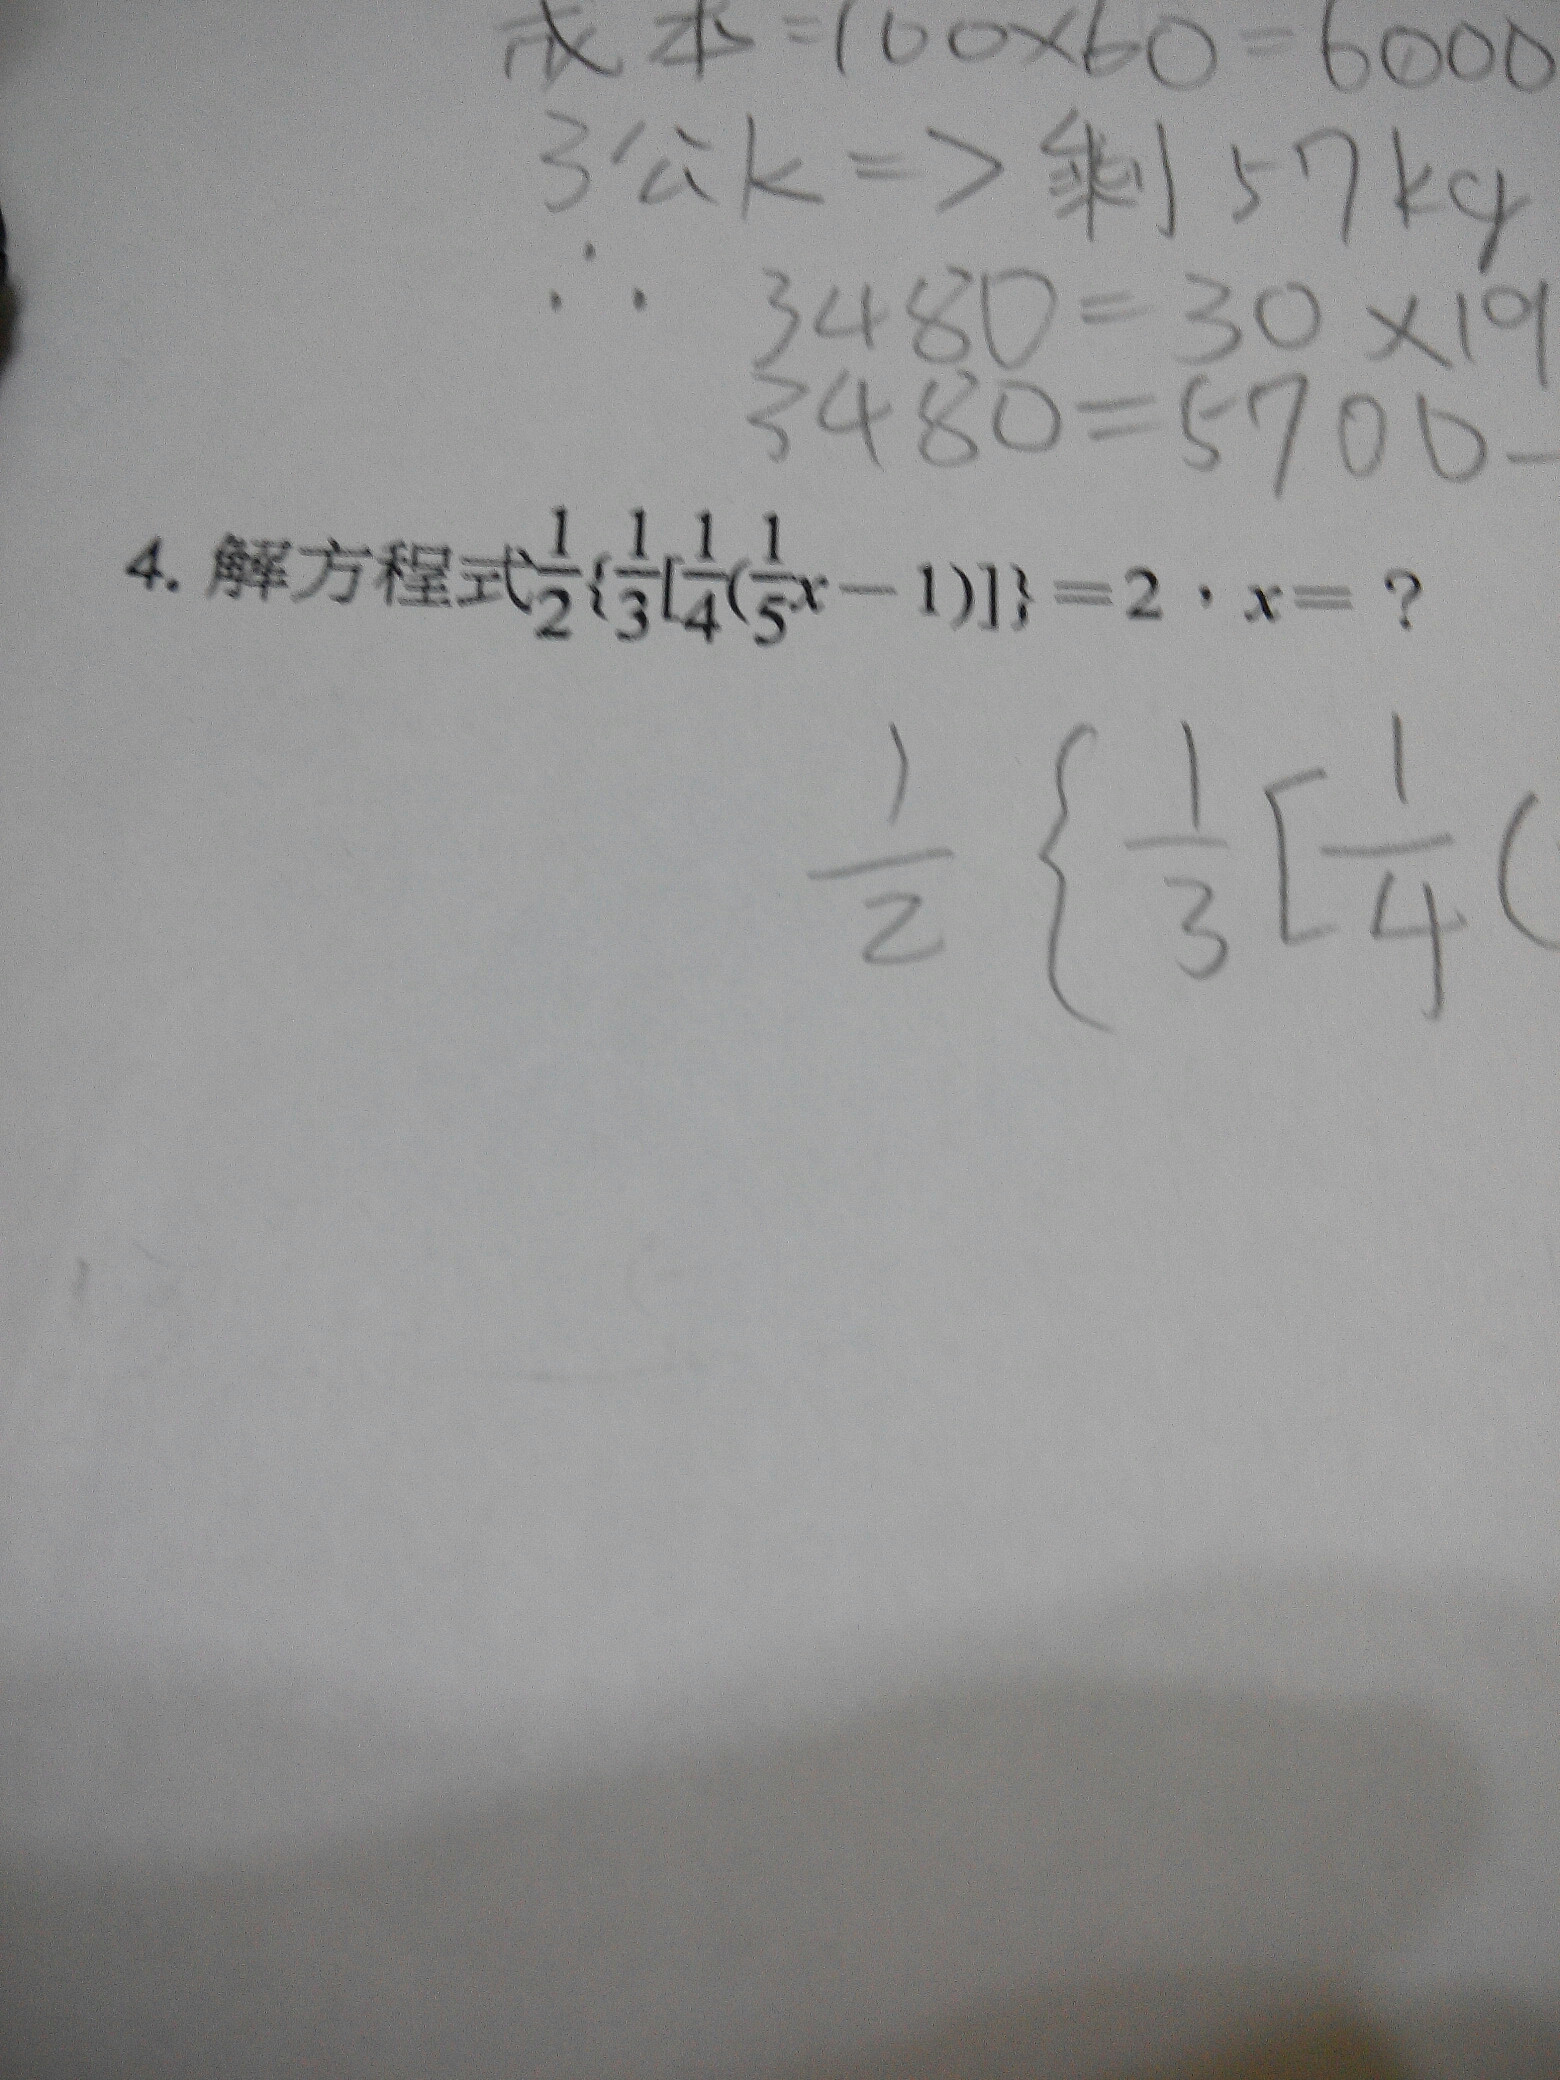 成本=100×60=6000
3公k=>剩57kg
∴ 3480=30×19
3480=5700-
4. 解方程式\frac{1}{2}{\frac{1}{3}[\frac{1}{4}(\frac{1}{5}x-1)]}=2，x=？
\frac{1}{2}{\frac{1}{3}[\frac{1}{4}(